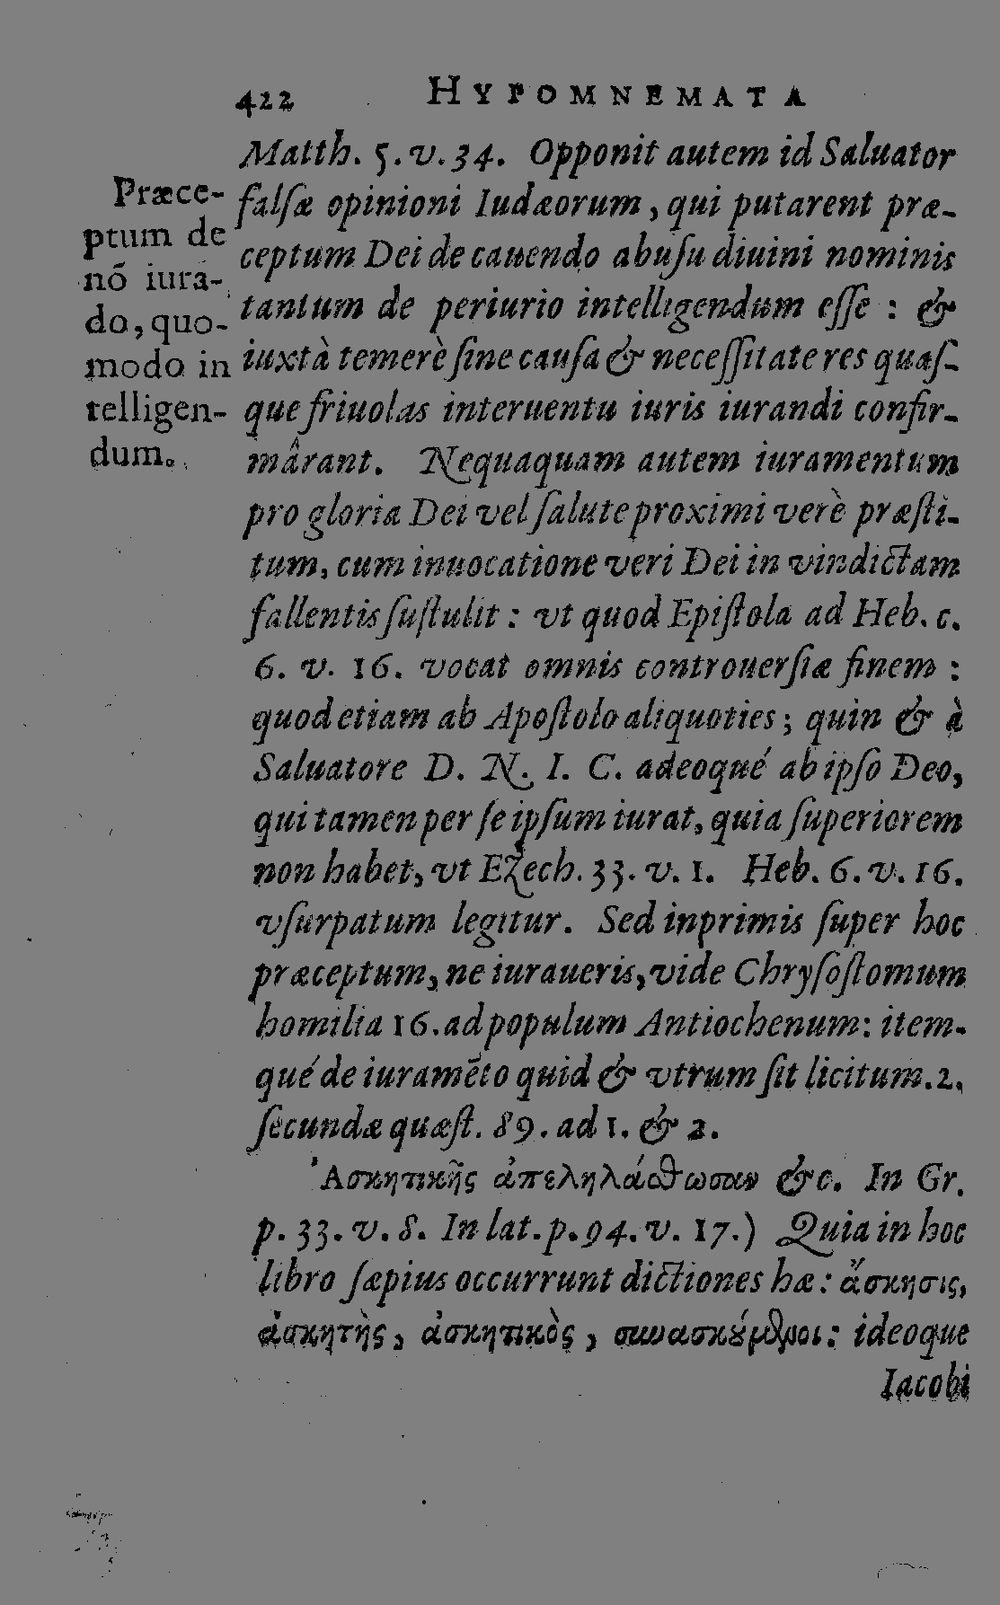 422 HYPOMNEMATA
Matth. 5. v. 34. Opponit autem id Saluator
falſæ opinioni Iudæorum, qui putarent præ-
ceptum Dei de cauendo abuſu diuini nominis
tantum de periurio intelligendum eſſe : &
iuxtà temerè ſine cauſa & neceſſitate res quaſ-
que friuolas interuentu iuris iurandi confir-
mârant. Nequaquam autem iuramentum
pro gloria Dei vel ſalute proximi verè præſti-
tum, cum inuocatione veri Dei in vindictam
fallentis ſuſtulit : vt quod Epiſtola ad Heb. c.
6. v. 16. vocat omnis controuerſiæ finem :
quod etiam ab Apoſtolo aliquoties ; quin & à
Saluatore D. N. I. C. adeoqué ab ipſo Deo,
qui tamen per ſe ipſum iurat, quia ſuperiorem
non habet, vt Ezech. 33. v. 1. Heb. 6. v. 16.
vſurpatum legitur. Sed inprimis ſuper hoc
præceptum, ne iuraueris, vide Chryſoſtomum
homilia 16. ad populum Antiochenum : item-
qué de iuramēto quid & vtrum ſit licitum. 2.
ſecundæ quæſt. 89. ad 1. & 2.
Ἀσκητικῆς ἀπεληλάσθωσαν &c. In Gr.
p. 33. v. 8. In lat. p. 94. v. 17.) Quia in hoc
libro ſæpius occurrunt dictiones hæ : ἄσκησις,
ἀσκητὴς, ἀσκητικὸς, συνασκούμενοι : ideoque
Iacobi
Præce-
ptum de
nō iura-
do, quo-
modo in
telligen-
dum.